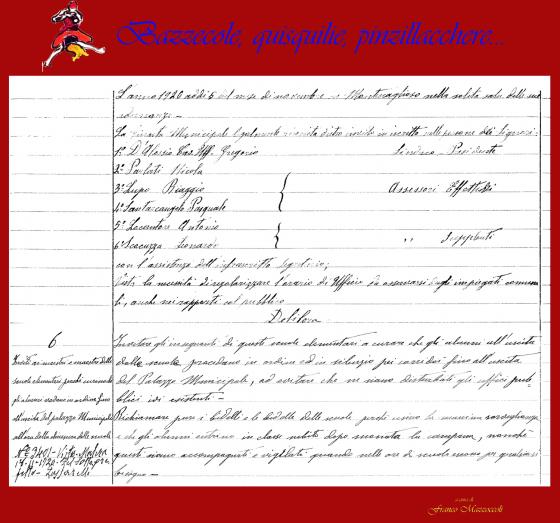 Bazzecole, quisquilie, pinzillacchere...
L'anno 1920 addì 5 del mese di novembre a Montescaglioso nella solita sala delle sue
adunanze -
La Giunta Municipale legalmente riunita dietro invito in iscritto nelle persone delli Signori:
1° D'Alessio Cav. Uff. Gregorio Sindaco - Presidente
2° Parlati Nicola
3° Lupo Biaggio Assessori Effettivi
4° Santarcangelo Pasquale
5° Locantore Antonio
6° Scacuzza Leonardo " Supplenti
con l'assistenza dell'infrascritto Segretario;
Vista la necessità di regolarizzare l'orario di Ufficio da osservarsi dagli impiegati comuna
li, anche nei rapporti col pubblico
Delibera
6
Invitare gli insegnanti di queste scuole elementari a curare che gli alunni all'uscita
dalle scuole procedano in ordine ed in silenzio pei corridoi fino all'uscita
del Palazzo Municipale, ad evitare che ne siano disturbati gli uffici pub
blici ivi esistenti -
Richiamare pure i bidelli e le bidelle delle scuole perchè usino la massima sorveglianza
e che gli alunni entrino in classe subito dopo suonata la campana, nonchè
questi siano accompagnati e vigilati quando nelle ore di scuola escono per qualsiasi
bisogno -
Invito ai maestri e maestre delle
scuole elementari perchè curino che
gli alunni escano in ordine fino
all'uscita del palazzo Municipale
all'ora della chiusura delle scuole
a cura di
Franco Mazzoccoli